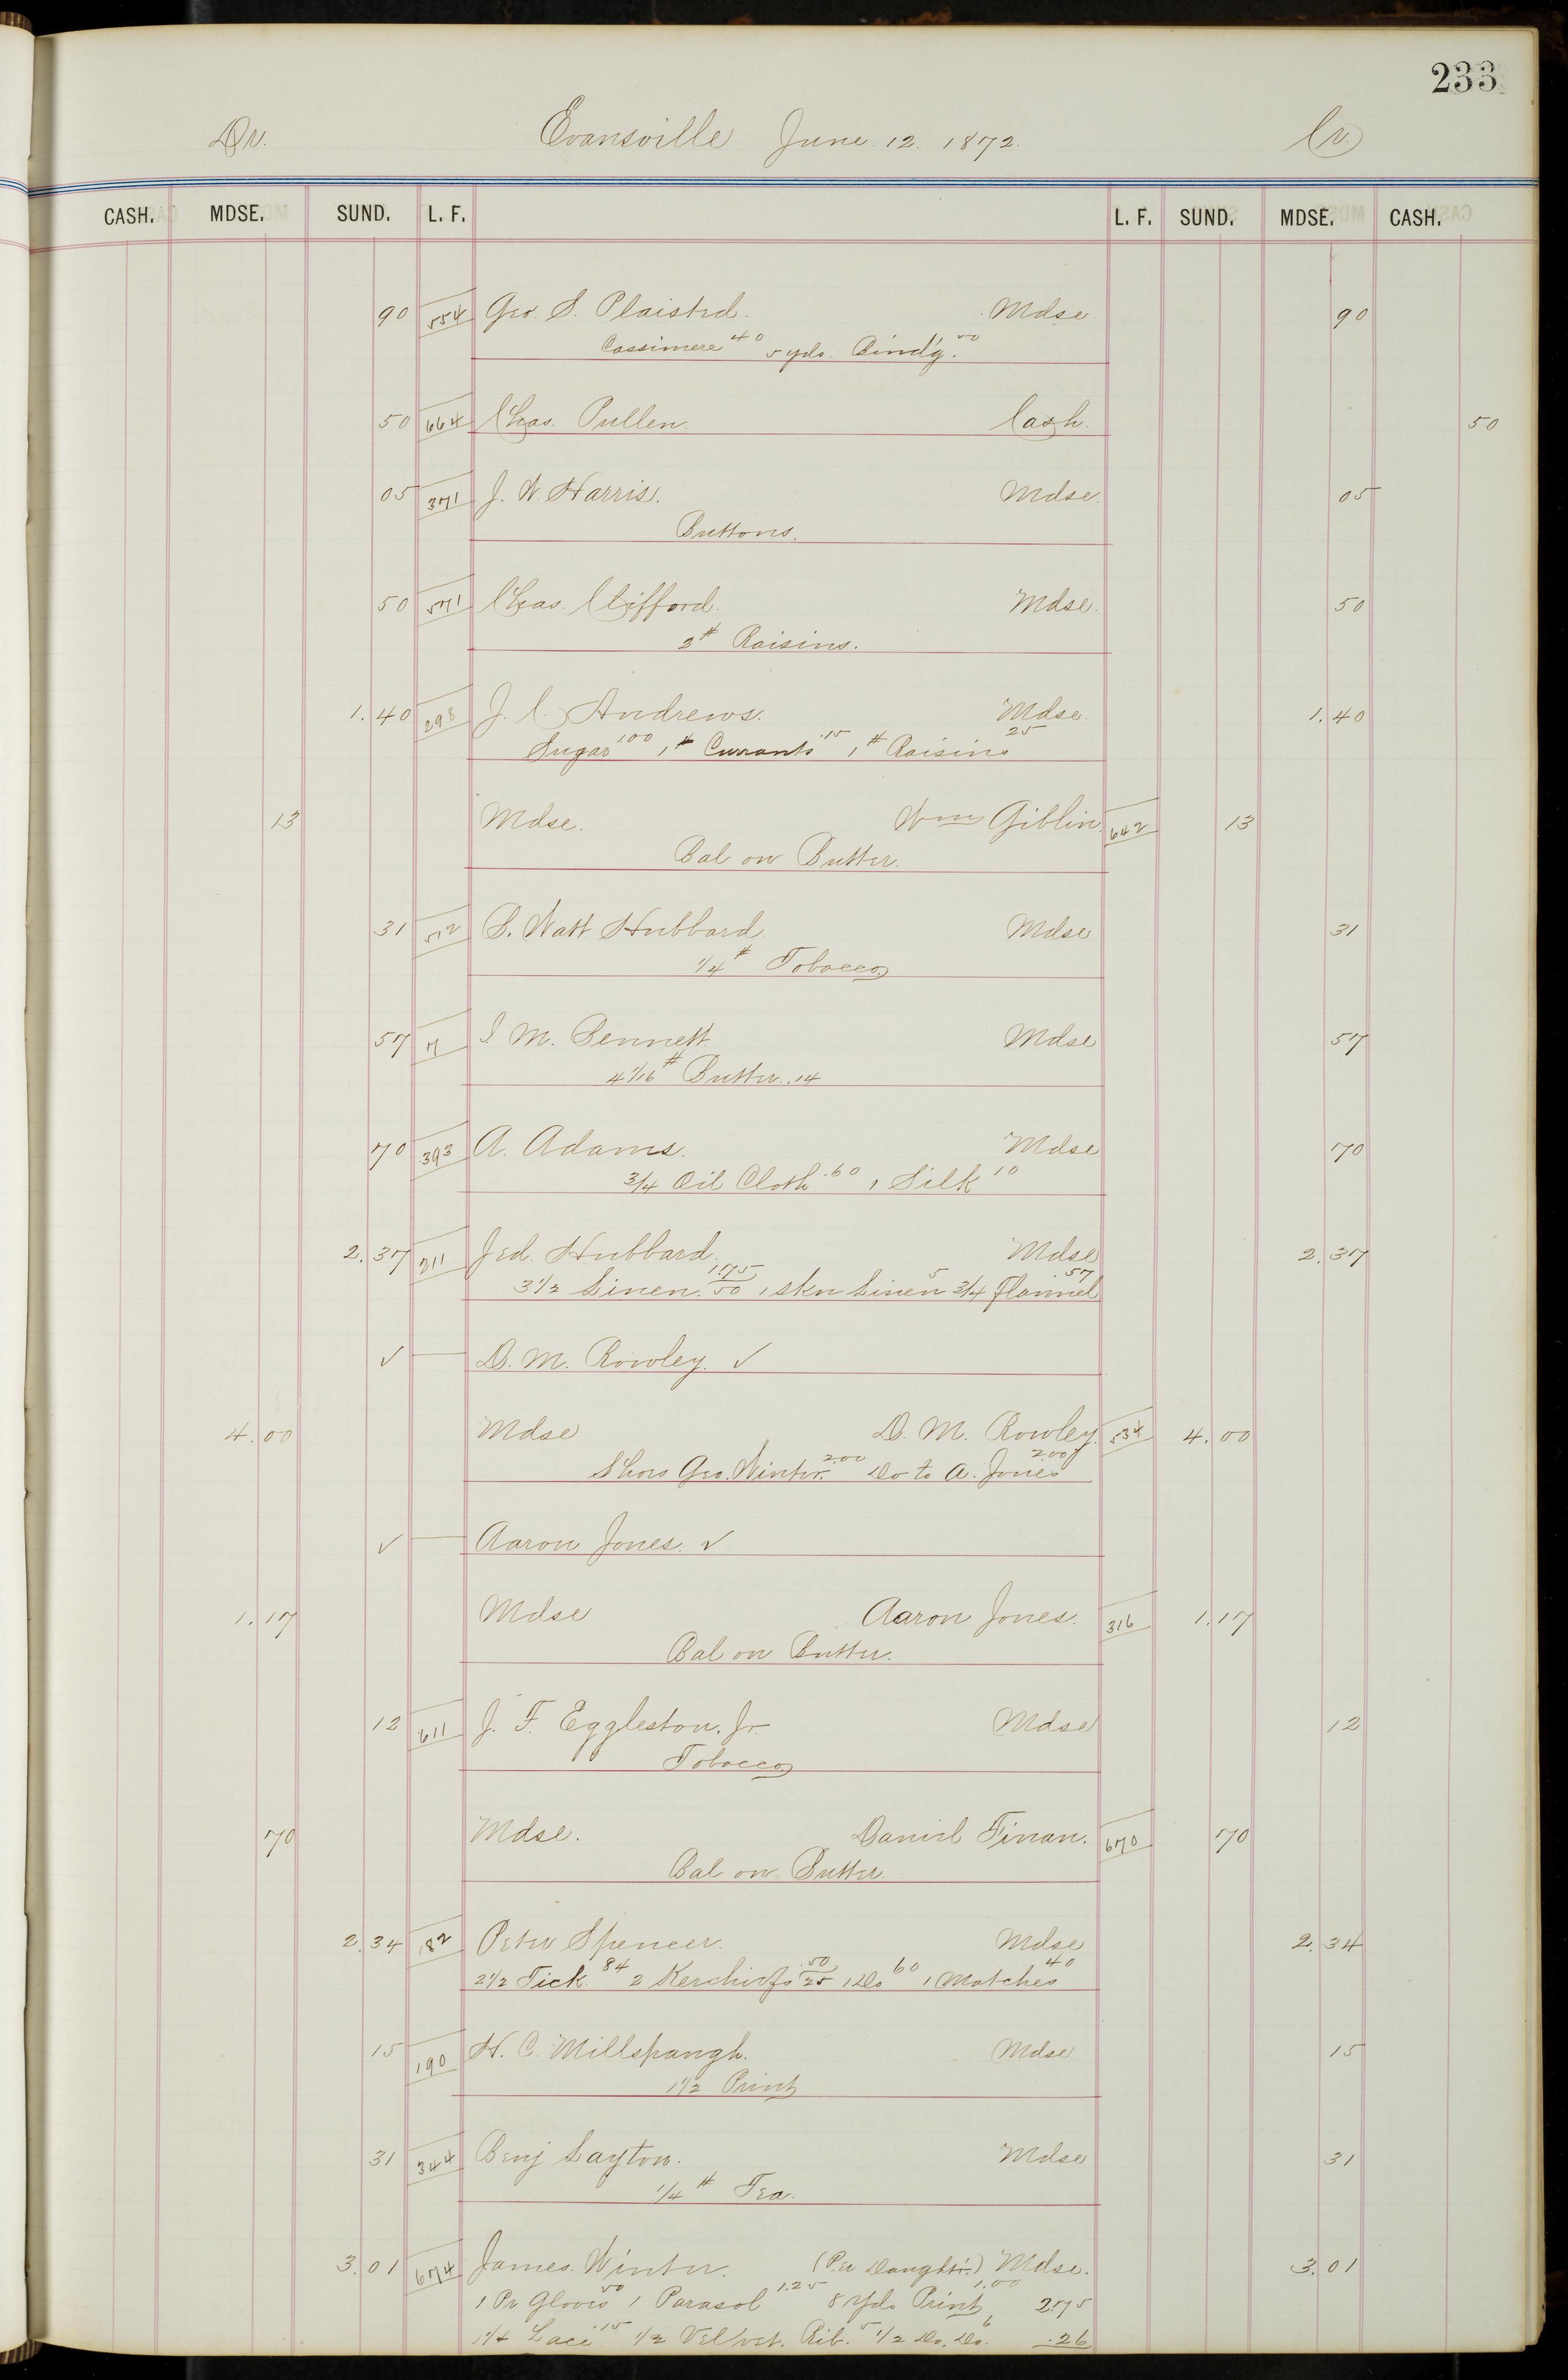 233
Dr. Evansville June 12. 1872. Cr.
CASH. MDSE. SUND. L. F. L. F. SUND. MDSE. CASH.
90 554 Geo. S. Plaisted. Mdse. 90
Cassimere 40 5 yds. Bind'g. 50
50 664 Chas. Pullen. Cash. 50
05 371 J. W. Harris. Mdse. 05
Buttons.
50 571 Chas. Clifford. Mdse. 50
2# Raisins.
1.40 298 J. C. Andrews. Mdse. 1.40
Sugar 1.00 1# Currants .15 1# Raisins 25
13 Mdse. Wm Giblin 642 13
Bal on Butter.
31 512 S. Watt Hubbard. Mdse 31
1/4# Tobacco
57 7 I M. Bennett. Mdse 57
4 1/16# Butter .14
70 393 A. Adams. Mdse 70
3/4 Oil Cloth .60 1 Silk 10
2.37 211 Jed. Hubbard. Mdse 2.37
3 1/2 Linen. 1.75 50 1 skn Linen 5 3/4 Flannel .57
✓ D. M. Rowley. ✓
4.00 Mdse D. M. Rowley. 534 4.00
Shoes Geo. Winter. 2.00 Do to A. Jones 2.00
✓ Aaron Jones. ✓
1.17 Mdse Aaron Jones. 316 1.17
Bal on Butter.
12 611 J. F. Eggleston. Jr. Mdse 12
Tobacco
70 Mdse. Daniel Finan. 670 70
Bal on Butter
2.34 182 Peter Spencer. Mdse 2.34
2 1/2 Tick. 84 2 Kerchiefs .50 25 1 Do 60 1 Matches 40
15 190 H. C. Millspaugh. Mdse 15
1 1/2 Print
31 344 Benj Layton. Mdse 31
1/4# Tea.
3.01 674 James. Winter. (Per Daught'r.) Mdse. 3.01
1 Pr Gloves 50 1 Parasol 1.25 8 Yds Print 1.00 2.75
1 1/4 Lace .15 1/2 Velvet. Rib. 5 1/2 Do. Do. 6 .26